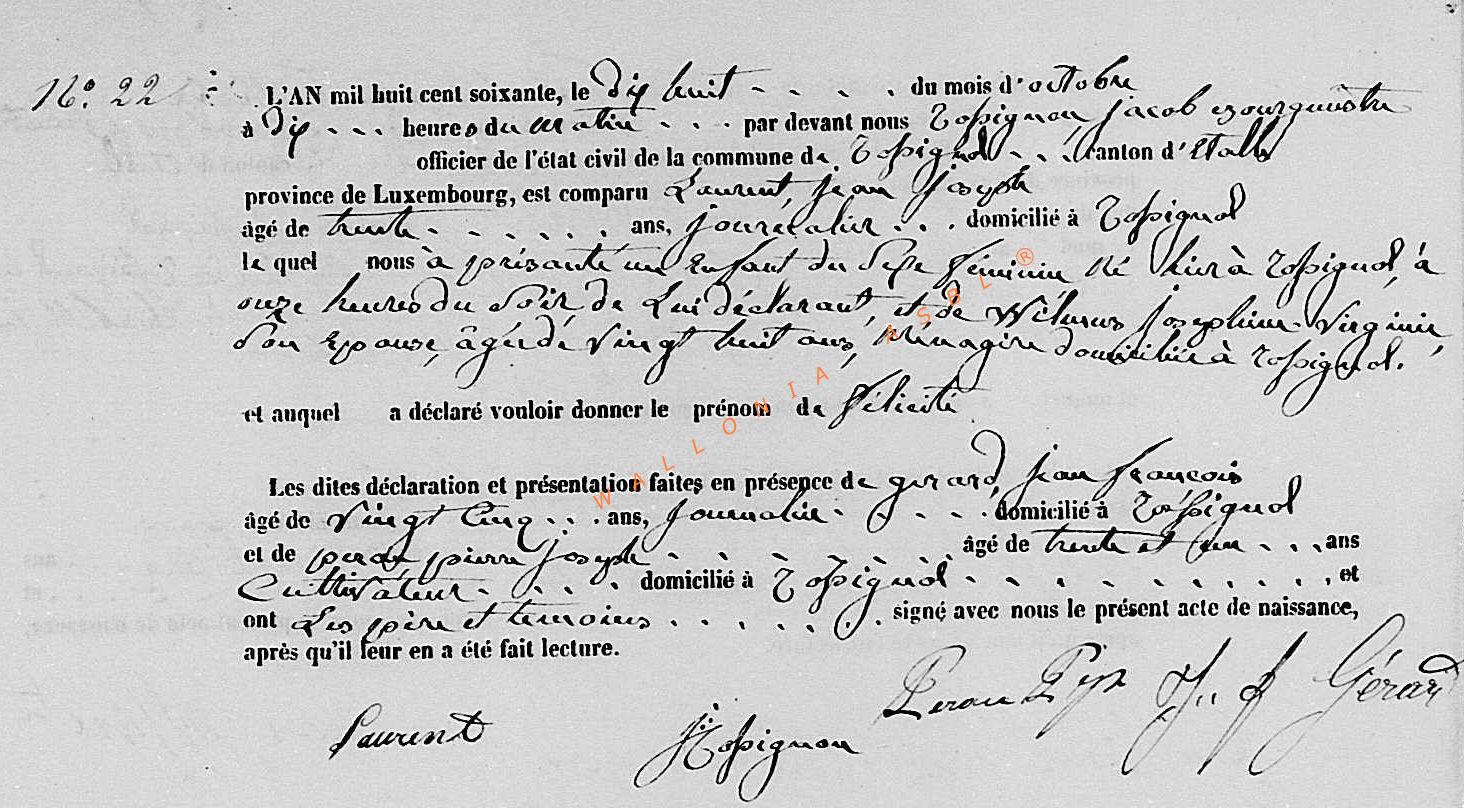 N.° 22 L'AN mil huit cent soixante, le Dix huit - - - - du mois d'octobre
à Dix - - - heures du Matin - - - par devant nous Rossignon, jacob Bourguestre
officier de l'état civil de la commune de Rossignol - - canton d'Etalle
province de Luxembourg, est comparu Laurent, jean joseph
âgé de trente - - - - - - ans, journalier - - - domicilié à Rossignol
le quel nous à présanté un Enfant du Sexe féminin Né hier à Rossignol, à
onze heures du Soir de Lui déclarant, et de Wilmus Josephine Virginie,
Son Epouse, âgée de Vingt huit ans, Ménagère domiciliée à Rossignol.
et auquel a déclaré vouloir donner le prénom de Félicité
Les dites déclaration et présentation faites en présence de gerard, jean françois
âgé de Vingt Cinq - - - ans, journalier - - - - domicilié à Rossignol
et de perau pierre joseph - - - - - - - âgé de trente et un - - - ans
Cultivateur - - - - domicilié à Rossignol - - - - - - - - - - et
ont Les père et temoins - - - - - - signé avec nous le présent acte de naissance,
après qu'il leur en a été fait lecture.
Perau J. F Gérard
Laurent Rossignon
WALLONIA ASBL ®